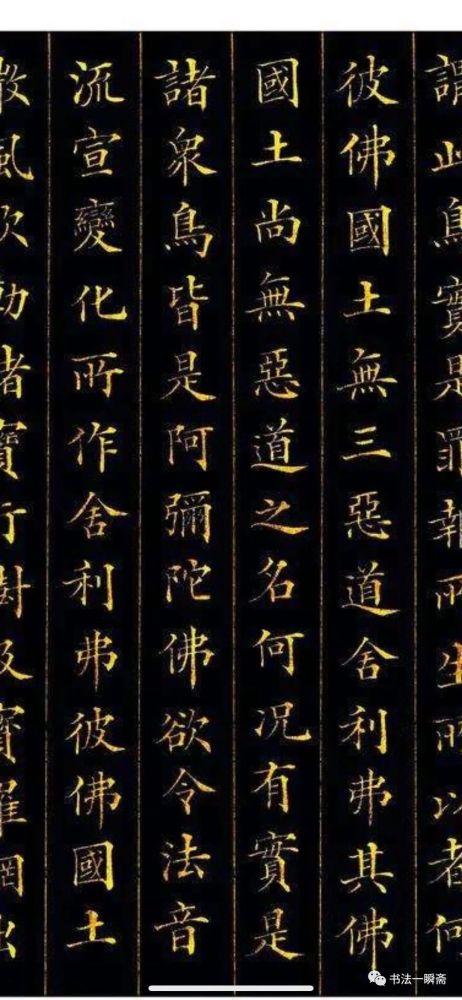 謂此鳥實是罪報所生所以者何
彼佛國土無三惡道舍利弗其佛
國土尚無惡道之名何況有實是
諸衆鳥皆是阿彌陀佛欲令法音
流宣變化所作舍利弗彼佛國土
微風吹動諸寶行樹及寶羅網出
书法一瞬斋